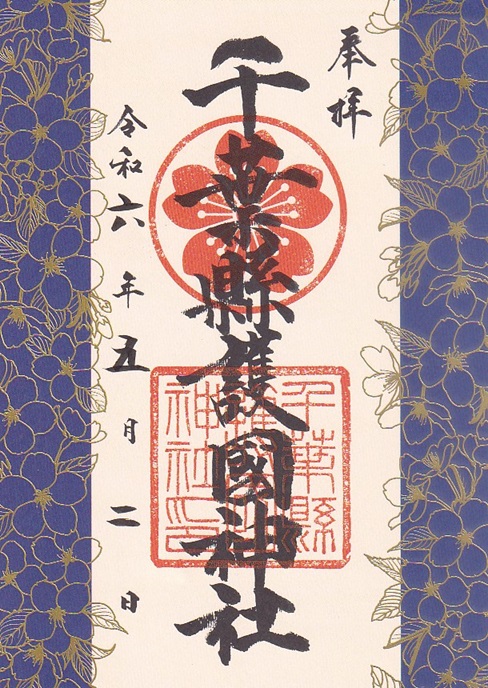 奉拝
千葉縣護國神社
千葉縣
護國
神社印
令和六年五月二日